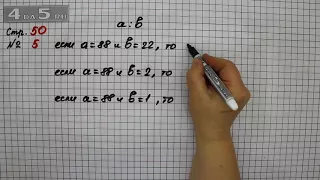 4DA5.RU
Стр. 50
№ 5
a:b
если a=88 и b=22, то
если a=88 и b=2, то
если a=88 и b=1, то